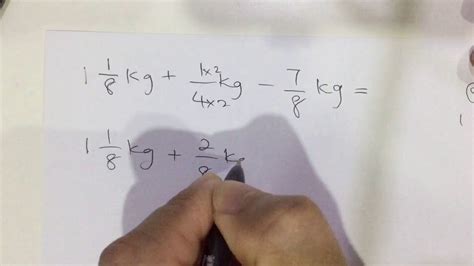 1 1/8 kg + 1×2/4×2 kg − 7/8 kg =
1 1/8 kg + 2/8 k